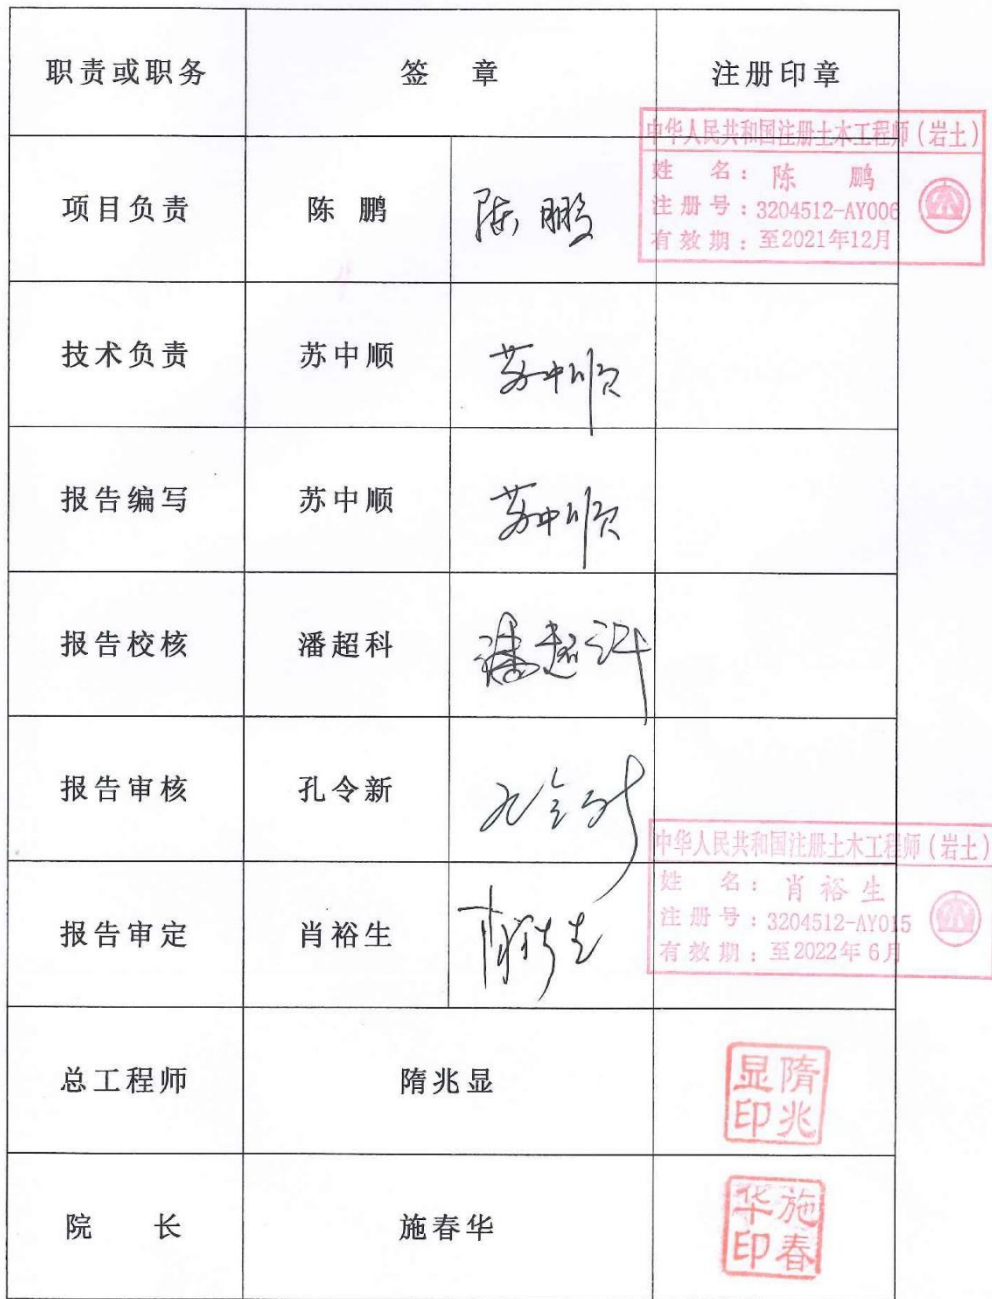 职责或职务 签 章 注册印章
中华人民共和国注册土木工程师(岩土)
项目负责 陈 鹏 陈鹏 姓 名：陈 鹏
注册号：3204512-AY006
有效期：至2021年12月
技术负责 苏中顺 苏中顺
报告编写 苏中顺 苏中顺
报告校核 潘超科 潘超科
报告审核 孔令新 孔令新
中华人民共和国注册土木工程师(岩土)
报告审定 肖裕生 肖裕生 姓 名：肖裕生
注册号：3204512-AY015
有效期：至2022年6月
总工程师 隋兆显 隋兆显印
院 长 施春华 施春华印